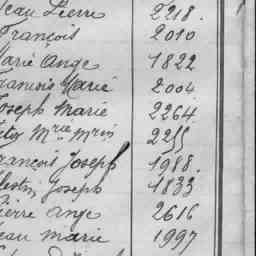 Jean Pierre 2218.
François 2010
Marie Ange 1822
François Marie 2004
Joseph Marie 2264.
Félix Mrie Mrin 2255
François Joseph 1988.
Célestin Joseph 1833
Pierre Ange 2616
Jean Marie 1997